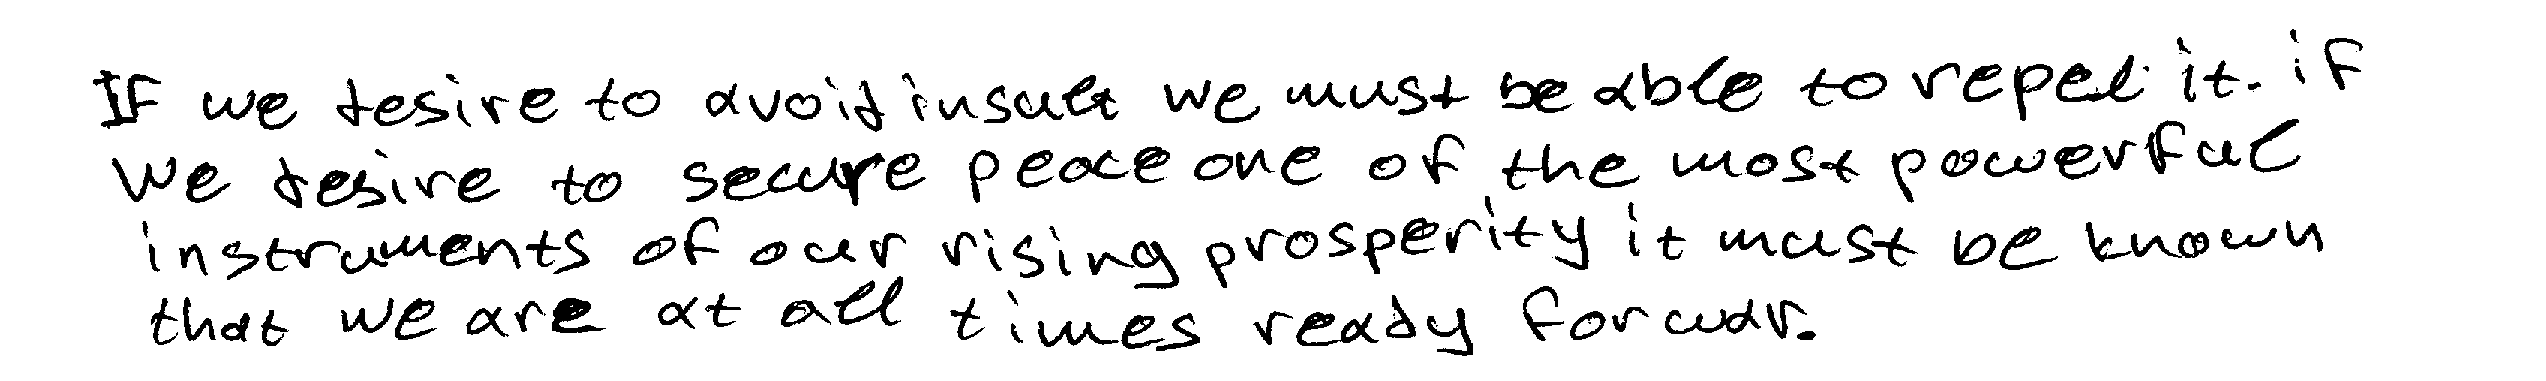 If we desire to avoid insult we must be able to repel it. if
We desire to secure peace one of the most powerful
instruments of our rising prosperity it must be known
that we are at all times ready for war.